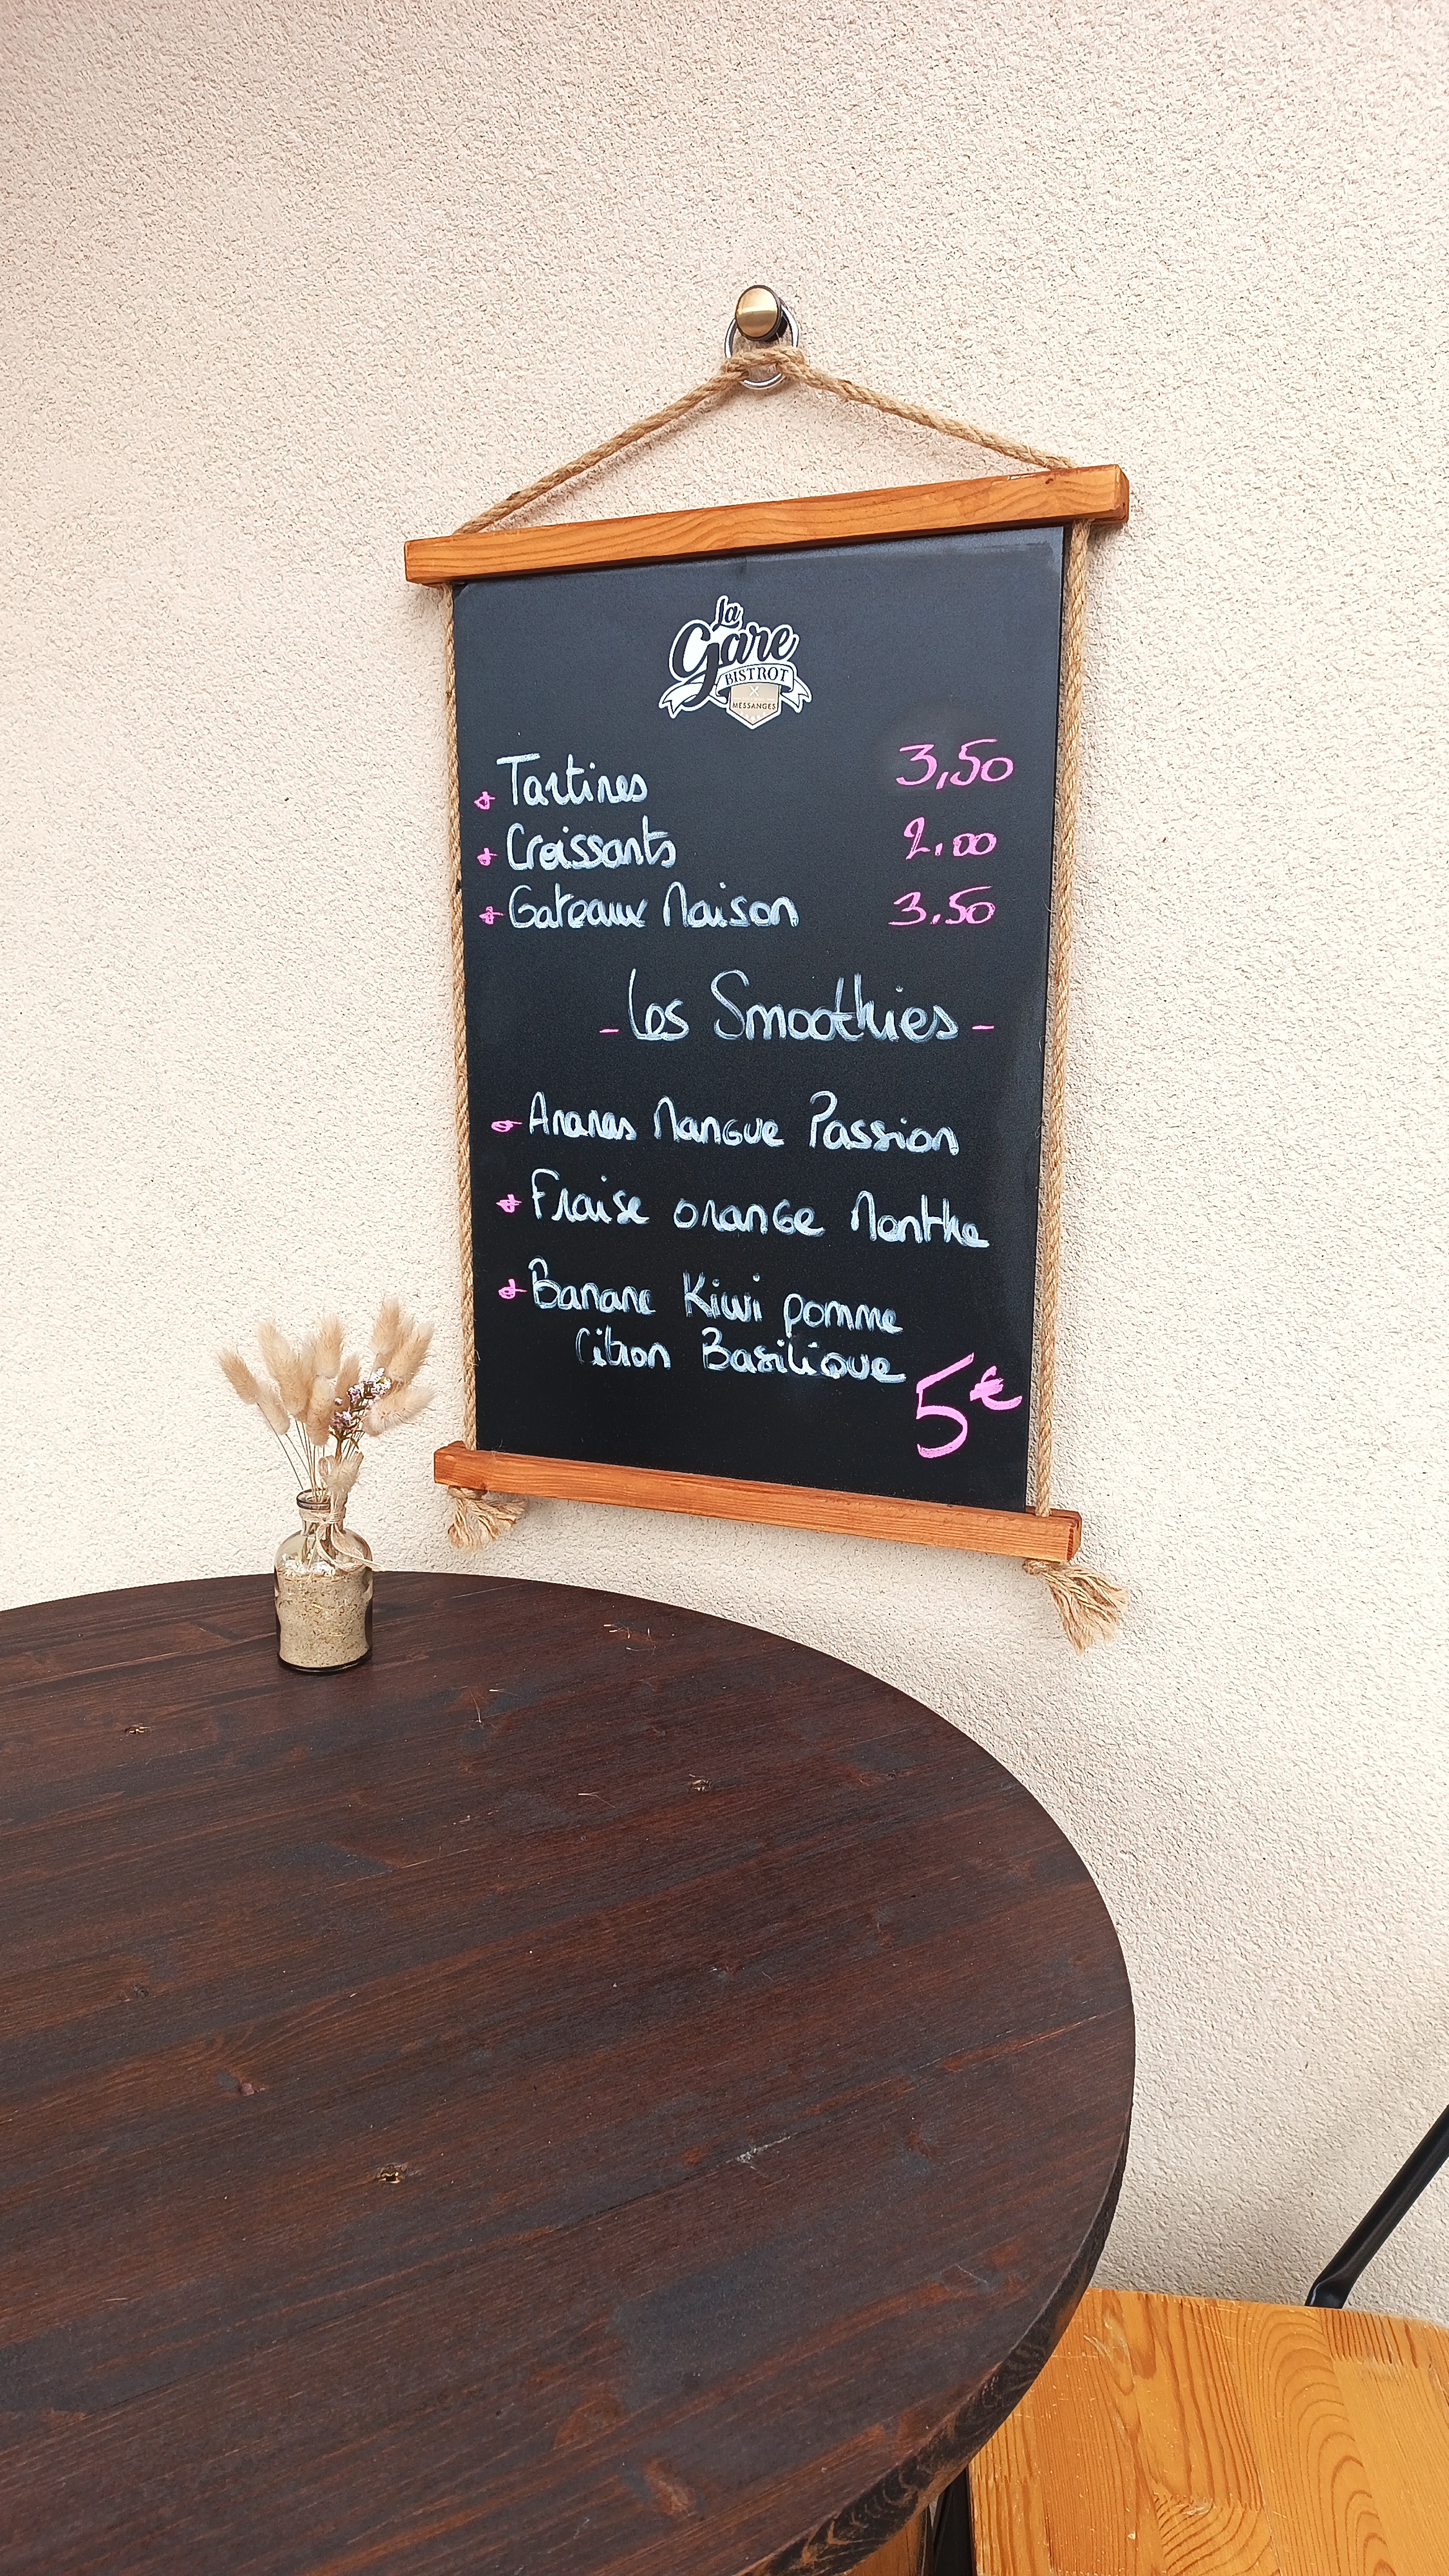 La
Gare
BISTROT
MESSANGES
Tartines 3,50
Croissants 2.00
Gateaux Maison 3.50
- Les Smoothies -
Ananas Mangue Passion
Fraise orange Menthe
Banane Kiwi pomme
Citron Basilique
5€